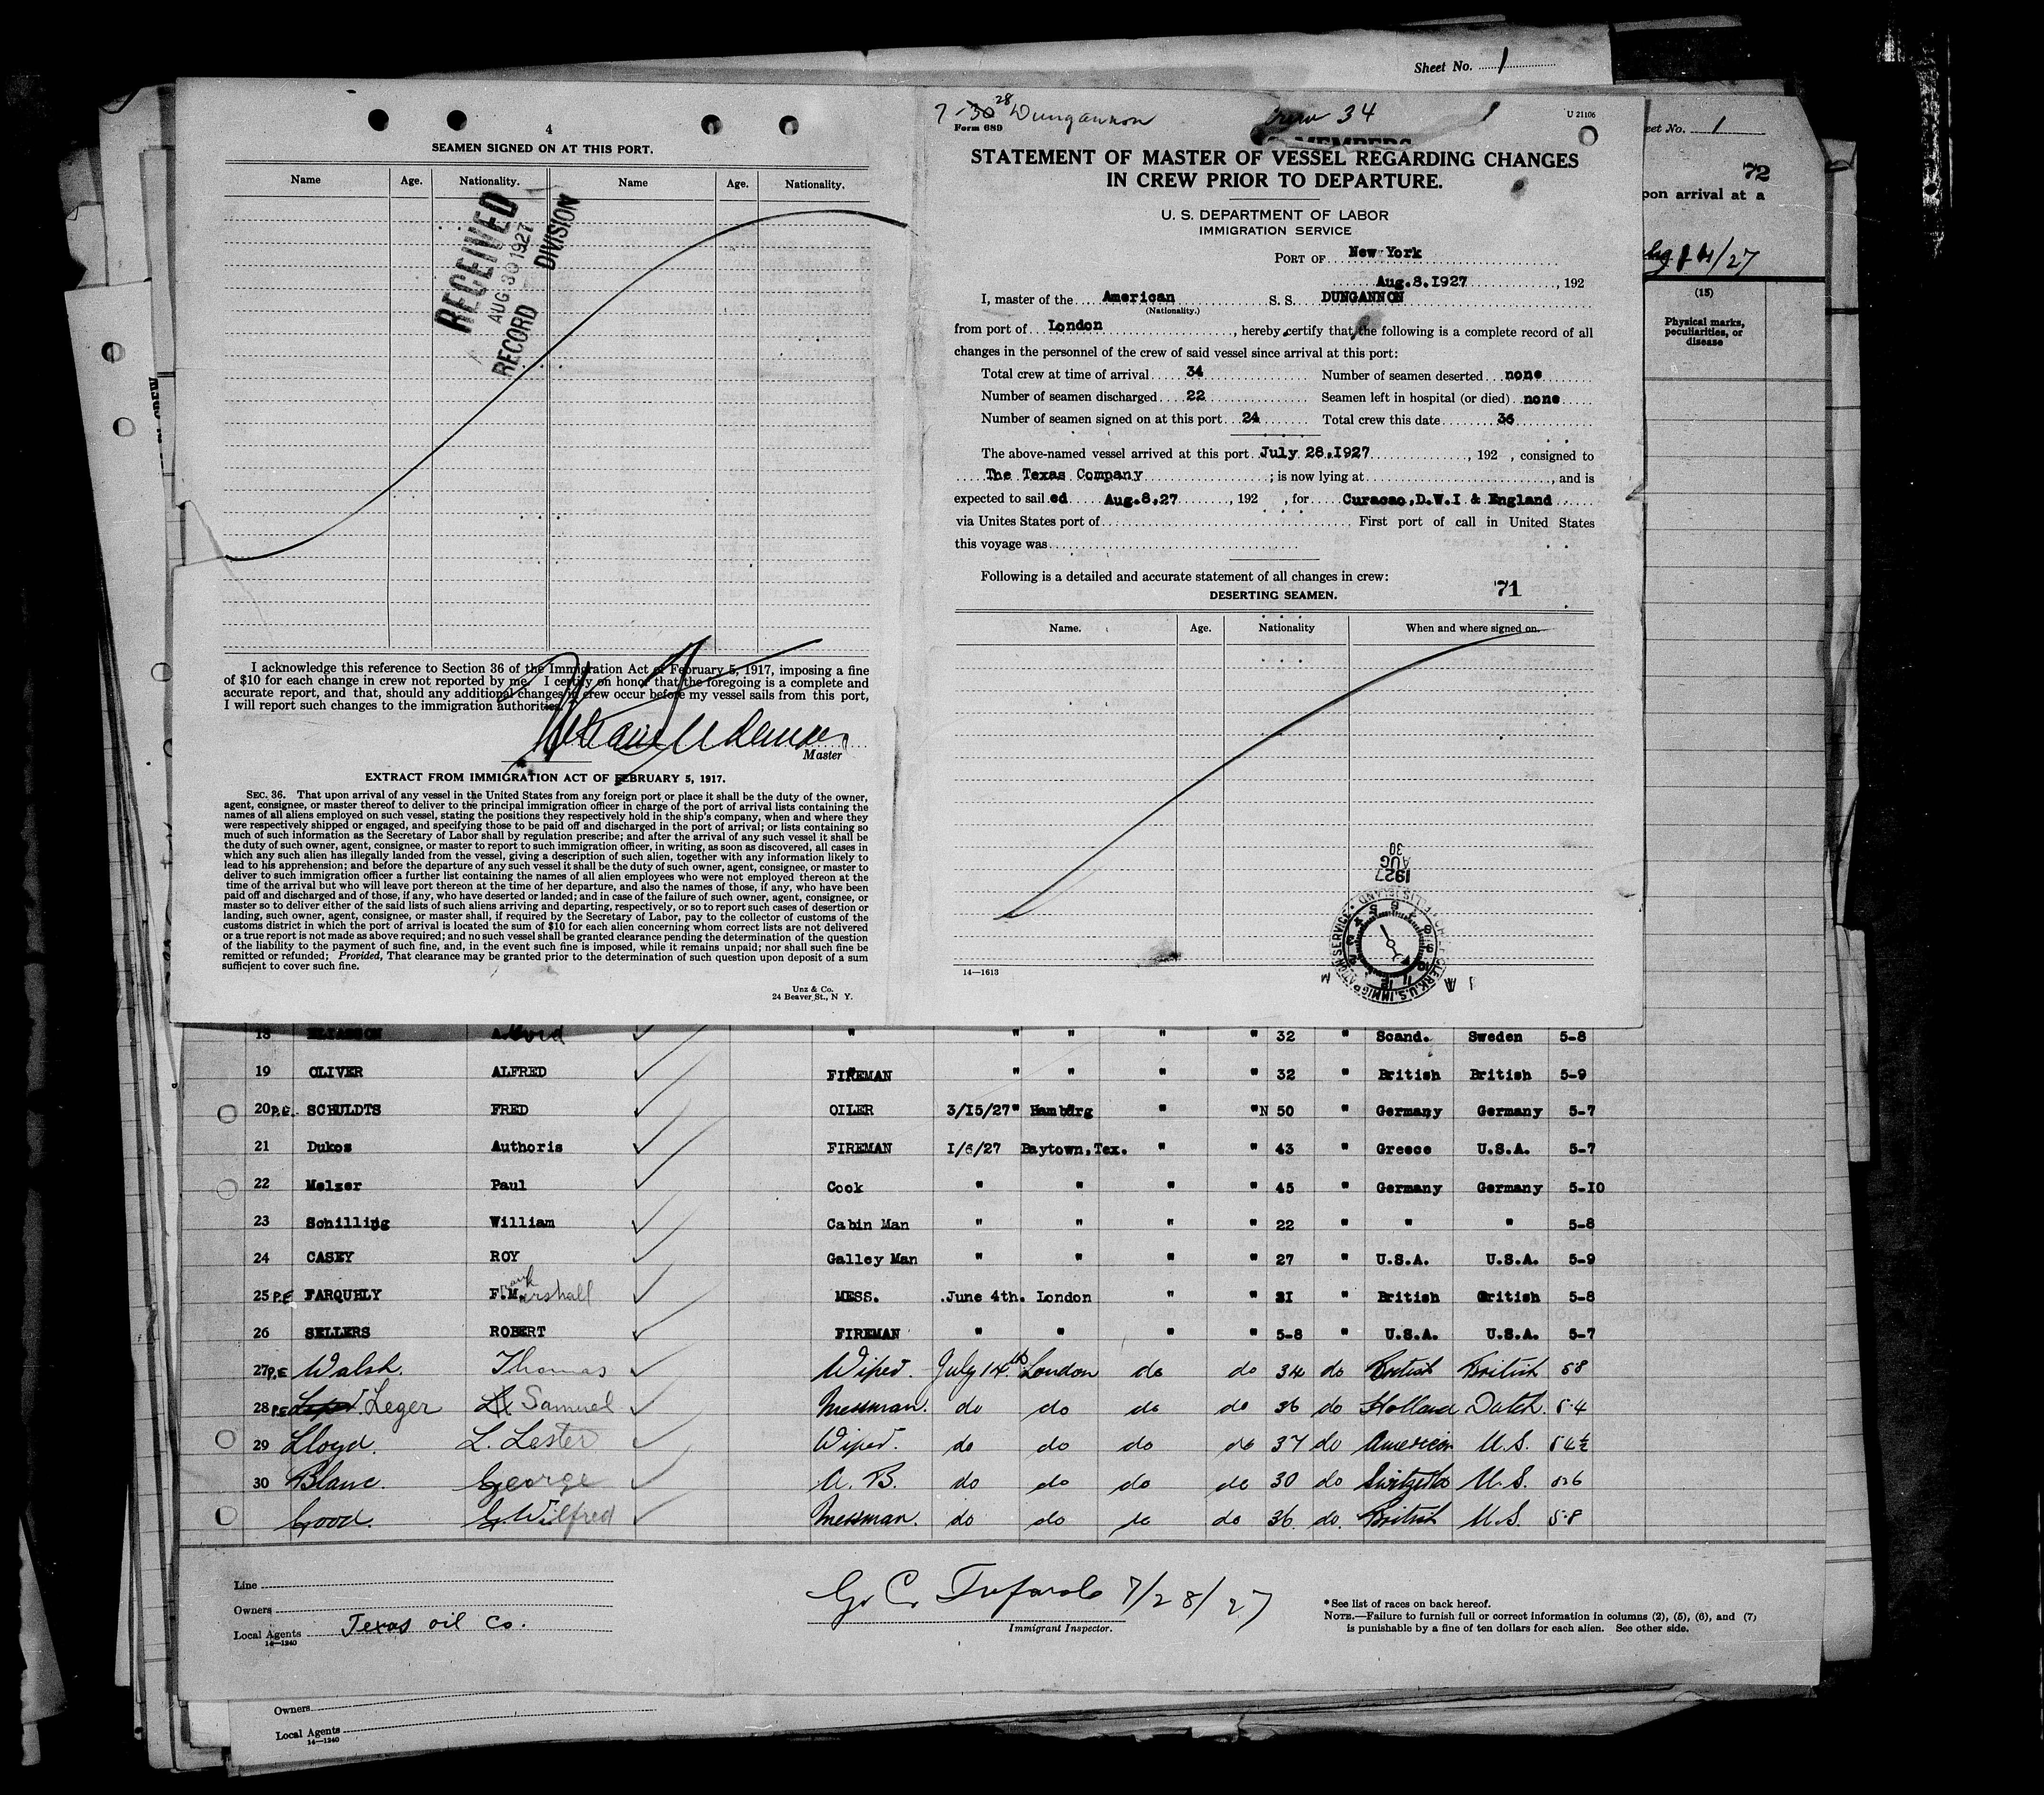 Sheet No. 1
Sheet No. 1
72
upon arrival at a
Aug 14/27
(15)
Physical marks,
peculiarities, or
disease
4
SEAMEN SIGNED ON AT THIS PORT.
Name Age. Nationality. Name Age. Nationality.
RECEIVED
AUG 30 1927
RECORD DIVISION
I acknowledge this reference to Section 36 of the Immigration Act of February 5, 1917, imposing a fine
of $10 for each change in crew not reported by me. I certify on honor that the foregoing is a complete and
accurate report, and that, should any additional changes in crew occur before my vessel sails from this port,
I will report such changes to the immigration authorities.
Master
EXTRACT FROM IMMIGRATION ACT OF FEBRUARY 5, 1917.
SEC. 36. That upon arrival of any vessel in the United States from any foreign port or place it shall be the duty of the owner,
agent, consignee, or master thereof to deliver to the principal immigration officer in charge of the port of arrival lists containing the
names of all aliens employed on such vessel, stating the positions they respectively hold in the ship's company, when and where they
were respectively shipped or engaged, and specifying those to be paid off and discharged in the port of arrival; or lists containing so
much of such information as the Secretary of Labor shall by regulation prescribe; and after the arrival of any such vessel it shall be
the duty of such owner, agent, consignee, or master to report to such immigration officer, in writing, as soon as discovered, all cases in
which any such alien has illegally landed from the vessel, giving a description of such alien, together with any information likely to
lead to his apprehension; and before the departure of any such vessel it shall be the duty of such owner, agent, consignee, or master to
deliver to such immigration officer a further list containing the names of all alien employees who were not employed thereon at the
time of the arrival but who will leave port thereon at the time of her departure, and also the names of those, if any, who have been
paid off and discharged and of those, if any, who have deserted or landed; and in case of the failure of such owner, agent, consignee, or
master so to deliver either of the said lists of such aliens arriving and departing, respectively, or so to report such cases of desertion or
landing, such owner, agent, consignee, or master shall, if required by the Secretary of Labor, pay to the collector of customs of the
customs district in which the port of arrival is located the sum of $10 for each alien concerning whom correct lists are not delivered
or a true report is not made as above required; and no such vessel shall be granted clearance pending the determination of the question
of the liability to the payment of such fine, and, in the event such fine is imposed, while it remains unpaid; nor shall such fine be
remitted or refunded; Provided, That clearance may be granted prior to the determination of such question upon deposit of a sum
sufficient to cover such fine.
Unz & Co.
24 Beaver St., N Y.
7-30 28 Dungannon Crew 34 1
Form 689
U 21106
MEMBERS
STATEMENT OF MASTER OF VESSEL REGARDING CHANGES
IN CREW PRIOR TO DEPARTURE.
U. S. DEPARTMENT OF LABOR
IMMIGRATION SERVICE
PORT OF New York
Aug.8.1927, 192
I, master of the American S. S. DUNGANNON
(Nationality.)
from port of London, hereby certify that the following is a complete record of all
changes in the personnel of the crew of said vessel since arrival at this port:
Total crew at time of arrival 34 Number of seamen deserted none
Number of seamen discharged 22 Seamen left in hospital (or died) none
Number of seamen signed on at this port 24 Total crew this date 36
The above-named vessel arrived at this port July 28.1927, 192 , consigned to
The Texas Company; is now lying at , and is
expected to sail ed Aug.8.27, 192 , for Curacao,D.W.I & England
via Unites States port of First port of call in United States
this voyage was
Following is a detailed and accurate statement of all changes in crew:
71
DESERTING SEAMEN.
Name. Age. Nationality When and where signed on.
1927
AUG
30
14—1613
18 ELIASSON " " " " " 32 " Scand. Sweden 5-8
19 OLIVER ALFRED FIREMAN " " " " 32 " British British 5-9
20 P.E. SCHULDTS FRED OILER 3/15/27" Hamburg " "N 50 " Germany Germany 5-7
21 Dukos Authoris FIREMAN 1/6/27 Baytown,Tex. " " 43 " Greece U.S.A. 5-7
22 Melzer Paul Cook " " " " 45 " Germany Germany 5-10
23 Schilling William Cabin Man " " " " 22 " " " 5-8
24 CASEY ROY Galley Man " " " " 27 " U.S.A. U.S.A. 5-9
25 P.E FARQUHLY F.M. Frank Marshall MESS. June 4th. London " " 21 " British British 5-8
26 SELLERS ROBERT FIREMAN " " " " 5-8 " U.S.A. U.S.A. 5-7
27 P.E Walsh. Thomas Wiper. July 14th London do do 34 do British British 5 8
28 P.E Leger Samuel Messman. do do do do 36 do Holland Dutch. 5-4
29 Lloyd. L. Lester Wiper. do do do do 37 do American U.S. 5 4½
30 Blanc. George A. B. do do do do 30 do Switzerld U.S. 5-6
Good. G. Wilfred Messman. do do do do 36. do. British U.S. 5-8
Line
Owners
Local Agents Texas oil Co.
14—1240
7/28/27
Immigrant Inspector.
* See list of races on back hereof.
NOTE.—Failure to furnish full or correct information in columns (2), (5), (6), and (7)
is punishable by a fine of ten dollars for each alien. See other side.
Owners
Local Agents
14—1240